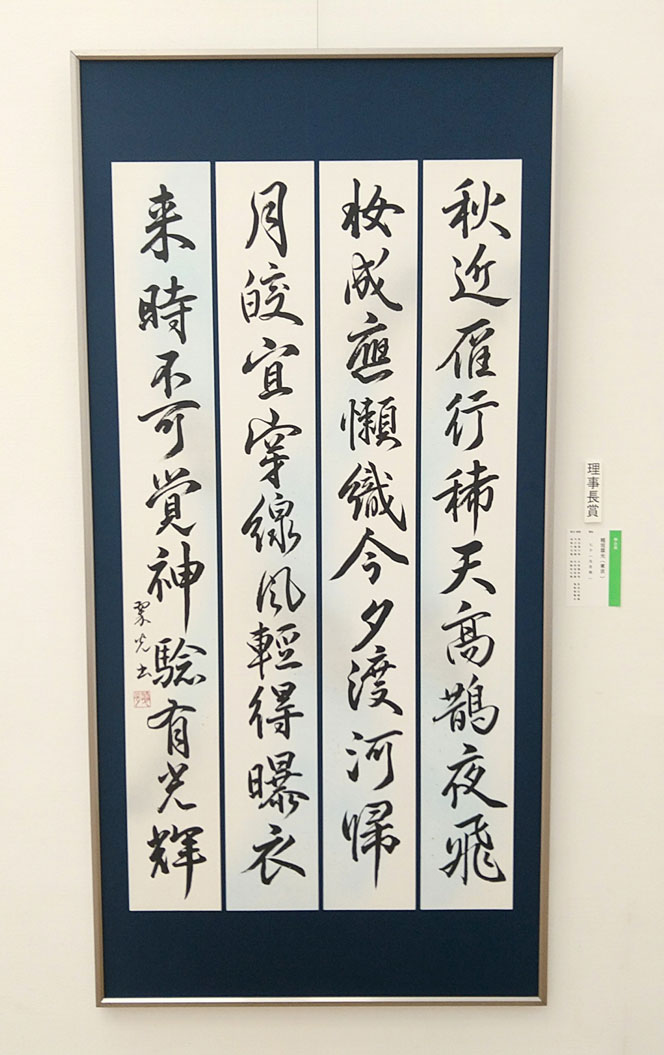 秋近雁行稀天高鵲夜飛
妝成應懶織今夕渡河帰
月皎宜穿線風輕得曝衣
来時不可覚神験有光輝
翠光書
理事長賞